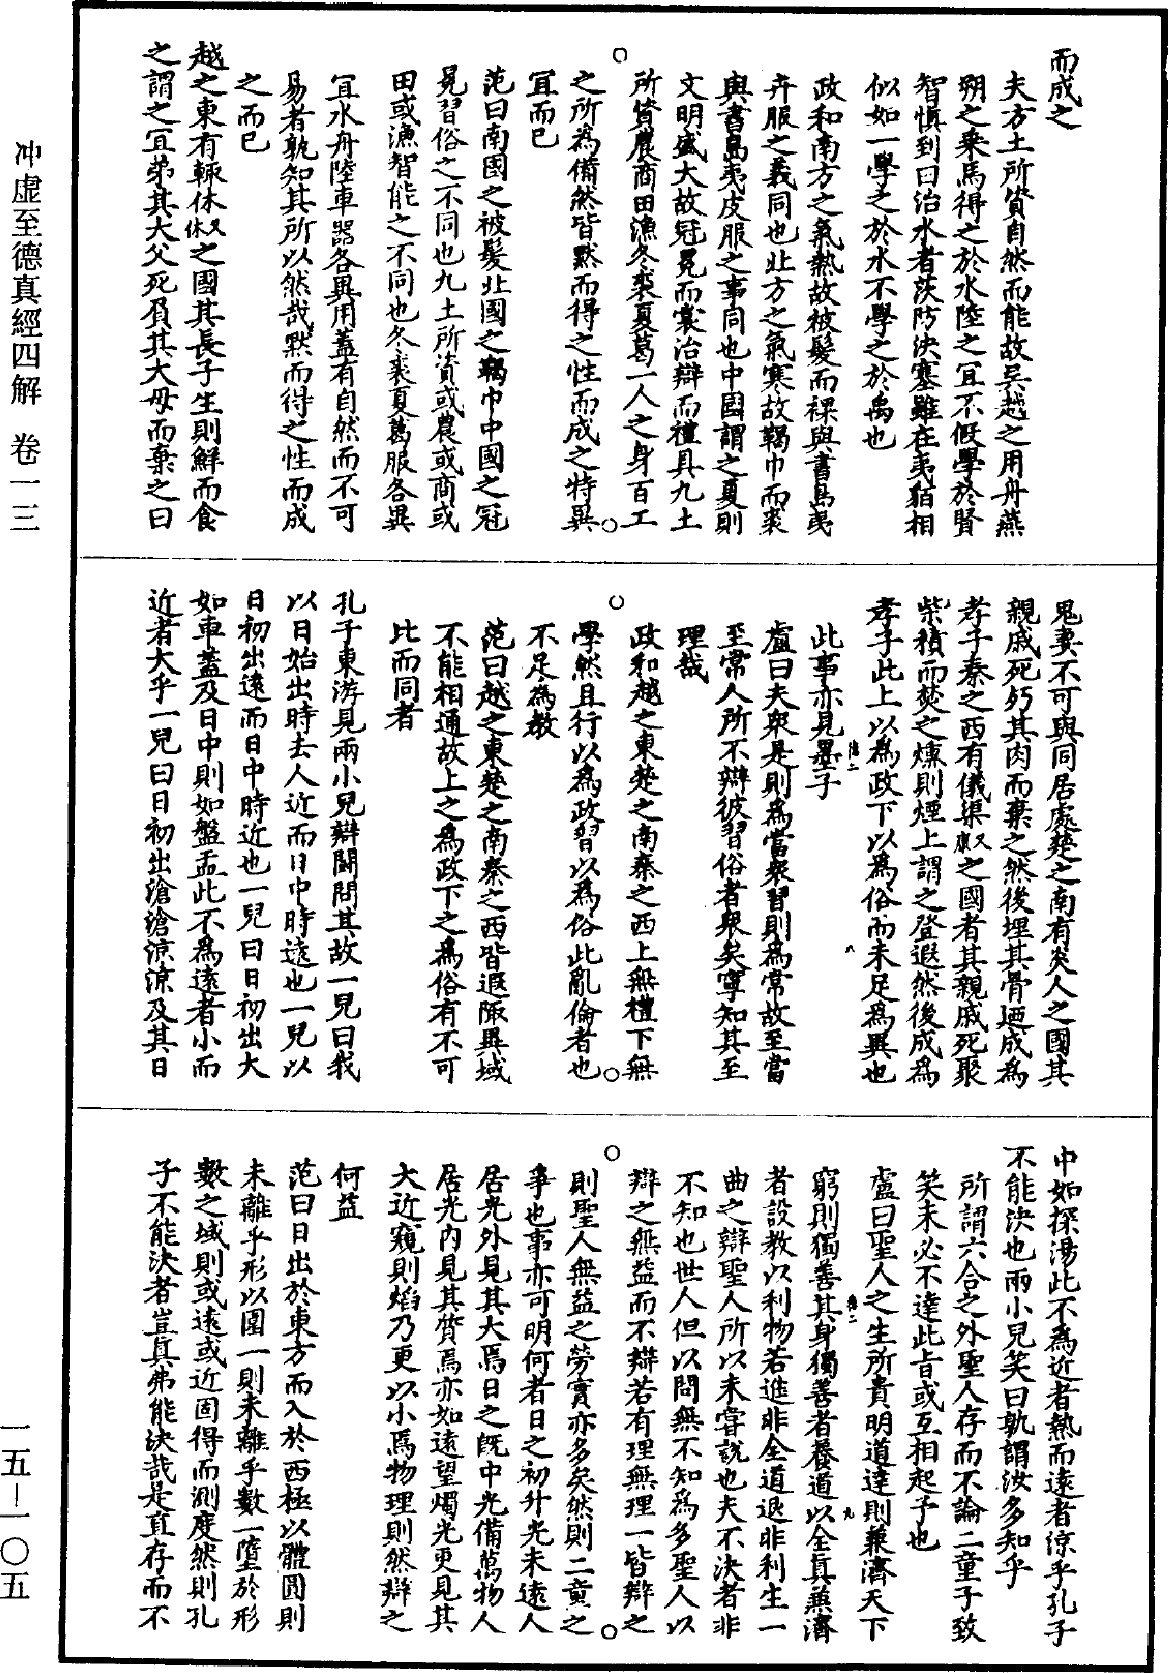 冲虛至德真經四解 卷一三
一五—一〇五
而成之
夫方土所資自然而能故吳越之用舟燕
朔之乘馬得之於水陸之宜不假學於賢
智慎到曰治水者茨防決塞雖在夷貊相
似如一學之於水不學之於禹也
政和南方之氣熱故被髮而裸與書島夷
卉服之義同也北方之氣寒故鞨巾而裘
與書島夷皮服之事同也中國謂之夏則
文明盛大故冠冕而裳治辯而禮具九土
所資農商田漁冬裘夏葛一人之身百工
之所為備然皆默而得之性而成之特異
宜而已
范曰南國之被髮北國之鞨巾中國之冠
冕習俗之不同也九土所資或農或商或
田或漁智能之不同也冬裘夏葛服各異
宜水舟陸車器各異用蓋有自然而不可
易者孰知其所以然哉默而得之性而成
之而已
越之東有輒休又休之國其長子生則鮮而食
之謂之宜弟其大父死負其大母而棄之曰
鬼妻不可與同居處楚之南有炎人之國其
親戚死㱙其肉而棄之然後埋其骨迺成為
孝子秦之西有儀渠又康之國者其親戚死聚
柴積而焚之燻則煙上謂之登遐然後成為
孝子此上以為政下以為俗而未足為異也
此事亦見墨子
盧曰夫眾是則為當眾習則為常故至當
至常人所不辯彼習俗者眾矣寧知其至
理哉
政和越之東楚之南秦之西上無禮下無
學然且行以為政習以為俗此亂倫者也
不足為教
范曰越之東楚之南秦之西皆遐陬異域
不能相通故上之為政下之為俗有不可
比而同者
孔子東游見兩小兒辯鬬問其故一兒曰我
以日始出時去人近而日中時遠也一兒以
日初出遠而日中時近也一兒曰日初出大
如車蓋及日中則如盤盂此不為遠者小而
近者大乎一兒曰日初出滄滄涼涼及其日
中如探湯此不為近者熱而遠者涼乎孔子
不能決也兩小兒笑曰孰謂汝多知乎
所謂六合之外聖人存而不論二童子致
笑未必不達此旨或互相起予也
盧曰聖人之生所貴明道達則兼濟天下
窮則獨善其身獨善者養道以全真兼濟
者設教以利物若進非全道退非利生一
曲之辯聖人所以未嘗說也夫不決者非
不知也世人但以問無不知為多聖人以
辯之無益而不辯若有理無理一皆辯之
則聖人無益之勞實亦多矣然則二童之
爭也事亦可明何者日之初升光未遠人
居光外見其大焉日之既中光備萬物人
居光內見其質焉亦如遠望燭光更見其
大近窺則焰乃更以小焉物理則然辯之
何益
范曰日出於東方而入於西極以體圓則
未離乎形以圍一則未離乎數一墮於形
數之域則或遠或近固得而測度然則孔
子不能決者豈真弗能決哉是直存而不